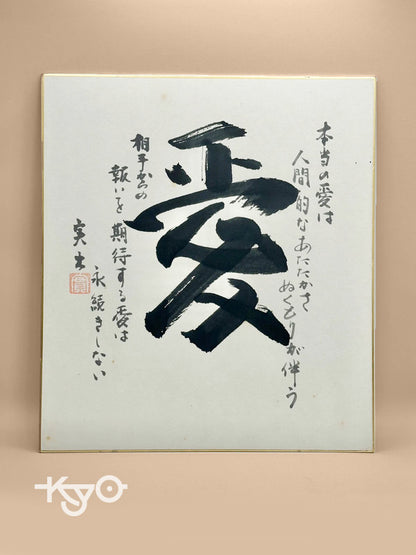 本当の愛は
人間的なあたたかさ
ぬくもりが伴う
愛
相手からの
報いを期待する愛は
永続きしない
KyO